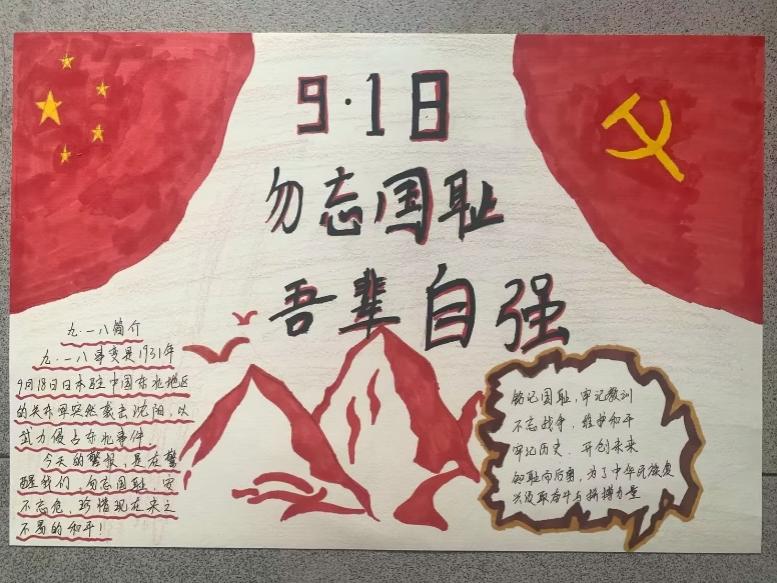 9·18
勿忘国耻
吾辈自强
九·一八简介
九·一八事变是1931年
9月18日日本驻中国东北地区
的关东军突然袭击沈阳，以
武力侵占东北事件
今天的警报，是在警
醒我们，勿忘国耻，安
不忘危，珍惜现在来之
不易的和平！
铭记国耻，牢记教训
不忘战争，维护和平
牢记历史，开创未来
知耻而后勇，为了中华民族复
兴汲取奋斗与拼搏力量